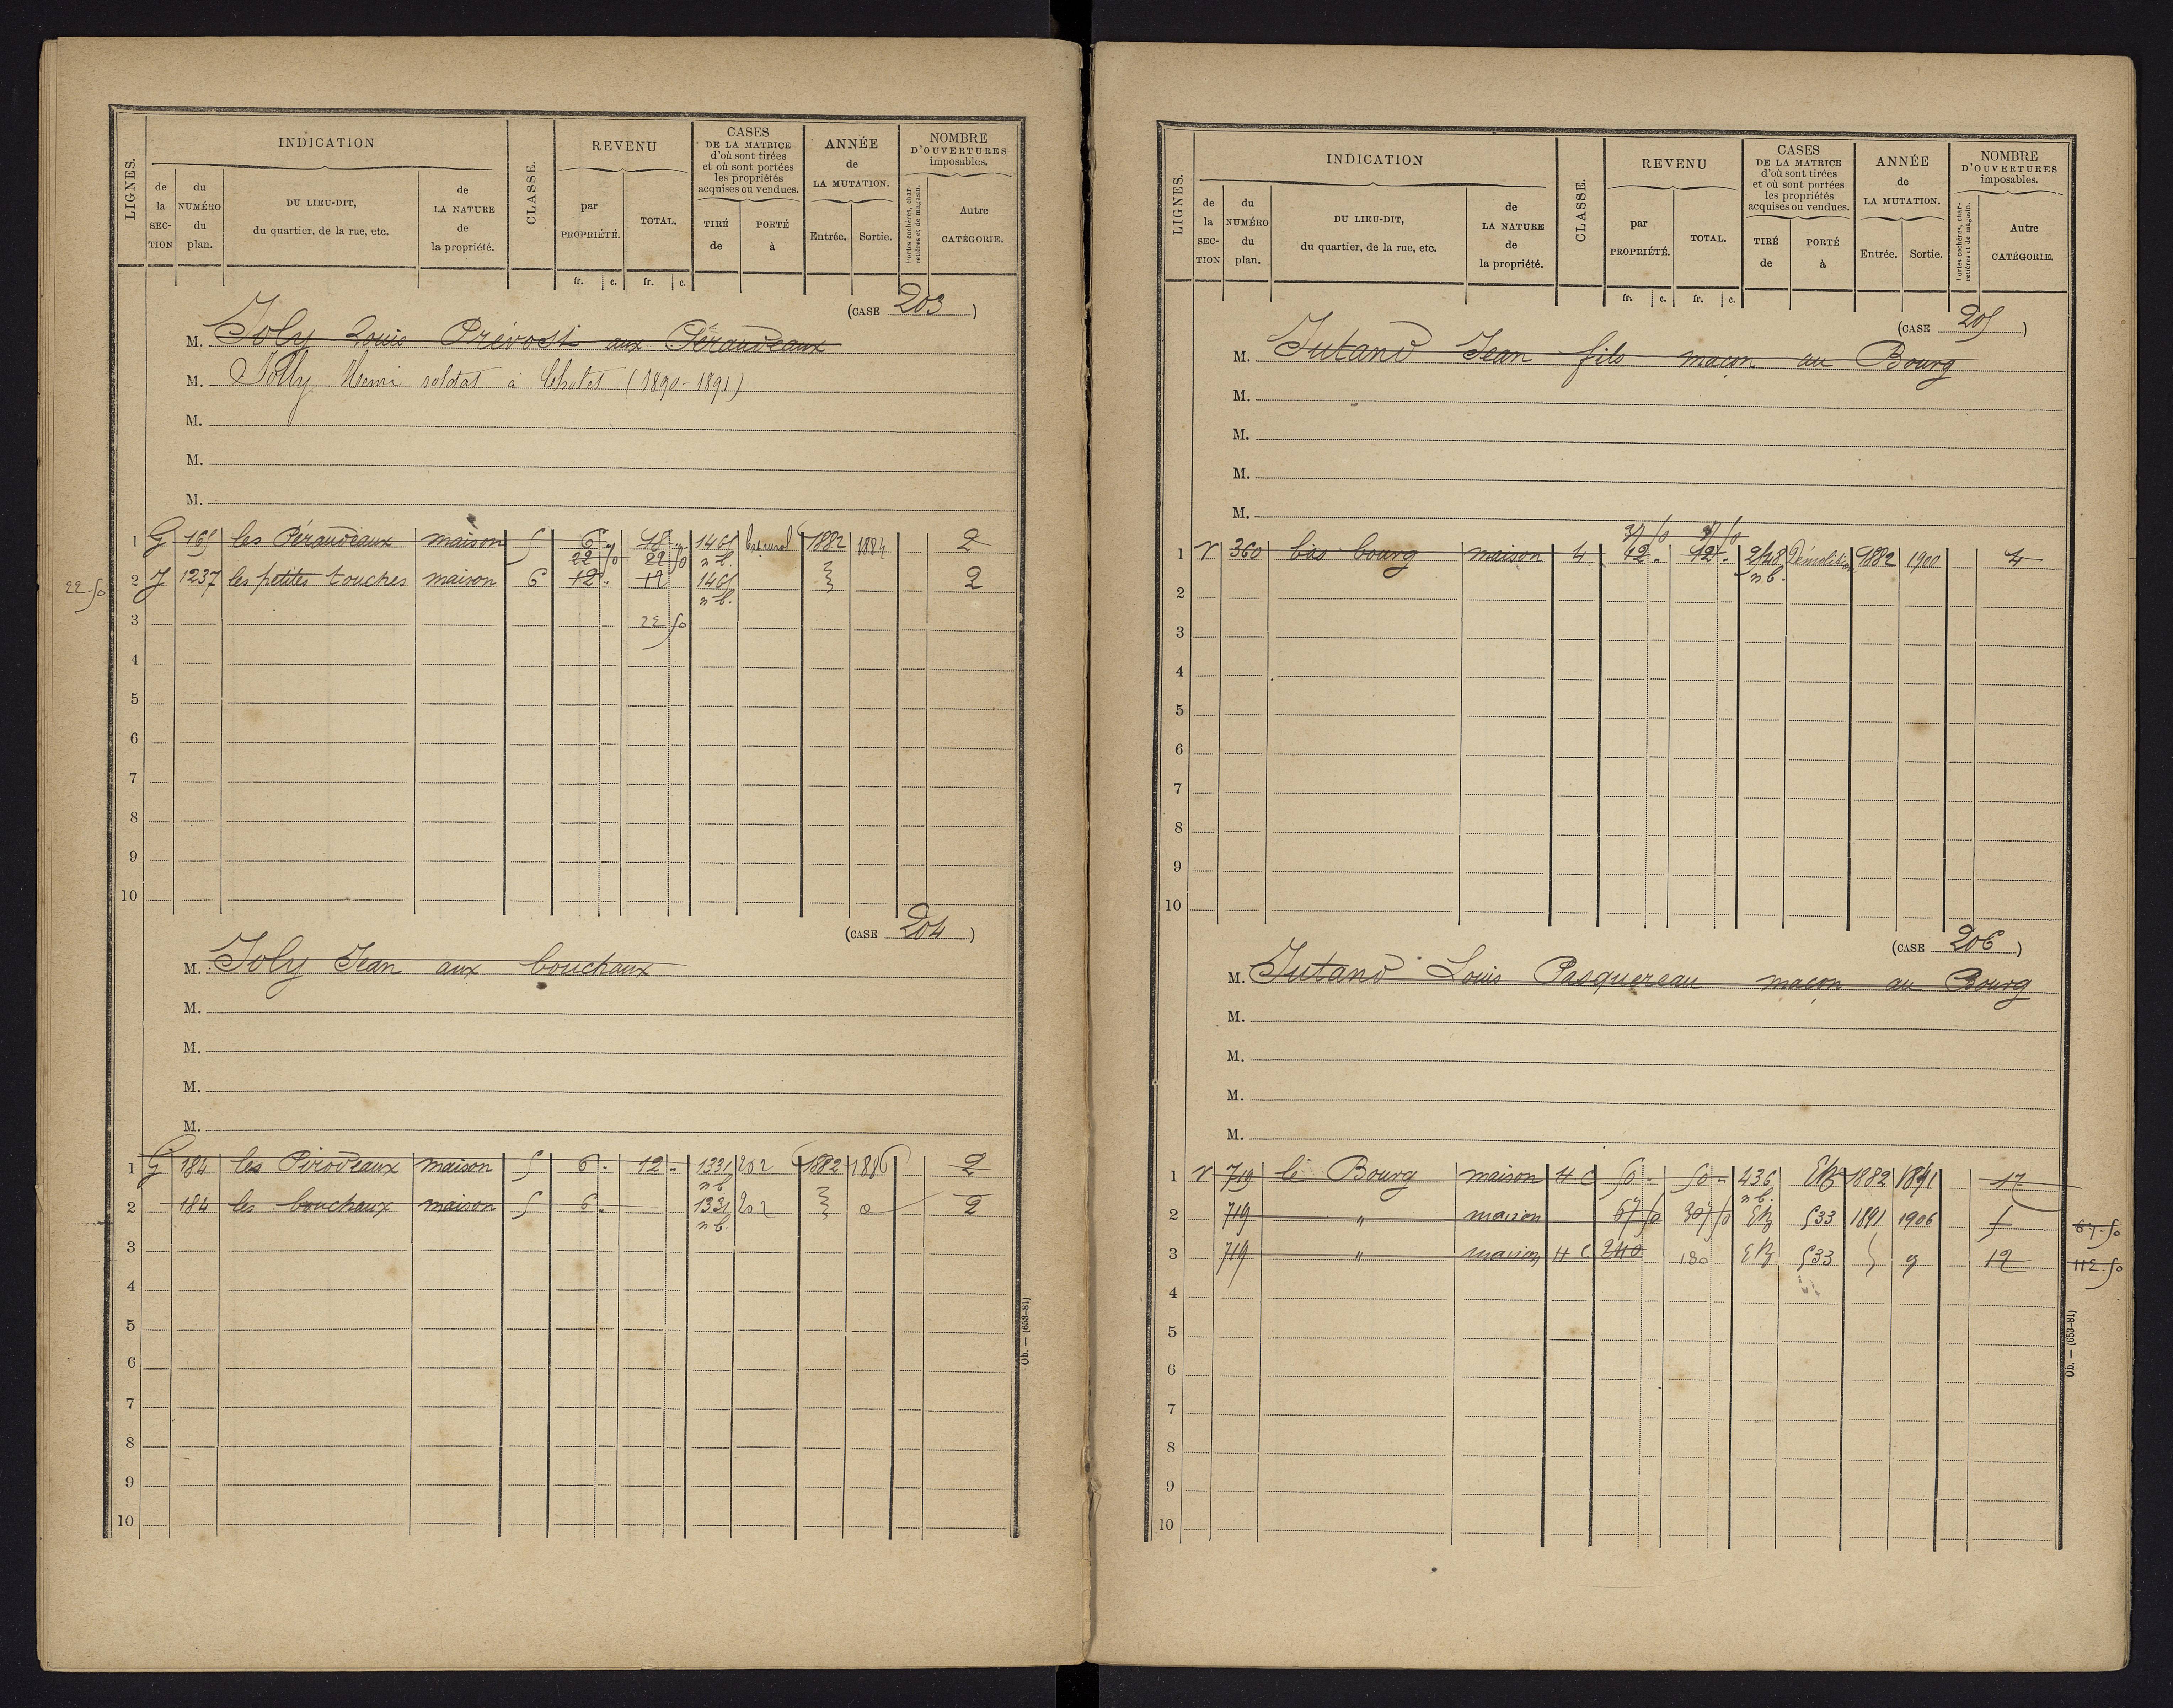 LIGNES.
INDICATION
de la SECTION
du NUMÉRO du plan.
DU LIEU-DIT, du quartier, de la rue, etc.
de LA NATURE de la propriété.
CLASSE.
REVENU
par PROPRIÉTÉ.
TOTAL.
fr. c. fr. c.
CASES DE LA MATRICE d'où sont tirées et où sont portées les propriétés acquises ou vendues.
TIRÉ de
PORTÉ à
ANNÉE de LA MUTATION.
Entrée. Sortie.
NOMBRE D'OUVERTURES imposables.
Portes cochères, charretières et de magasin.
Autre CATÉGORIE.
(CASE 203)
M. Joly Louis Prévost aux Péraudeaux
M. Jolly Henri soldat à Cholet (1890-1891)
M.
M.
M.
1 G 165 les Péraudeaux maison 5 6 " 18 " 1465 n.b. 1882 1884 2
22 50 22 50
2 J 1237 les petites touches maison 6 12 " 12 1465 n.b. 2
22.50
3 22 50
4
5
6
7
8
9
10
(CASE 204)
M. Joly Jean aux bouchaux
M.
M.
M.
M.
1 G 184 les Pirodeaux maison 5 6 " 12 " 1331 n.b. 202 1882 1886 2
2 184 les bouchaux maison 5 6 " 1331 n.b. 202 2
3
4
5
6
7
8
9
10
Ob. — (653-81)
LIGNES.
INDICATION
de la SECTION
du NUMÉRO du plan.
DU LIEU-DIT, du quartier, de la rue, etc.
de LA NATURE de la propriété.
CLASSE.
REVENU
par PROPRIÉTÉ.
TOTAL.
fr. c. fr. c.
CASES DE LA MATRICE d'où sont tirées et où sont portées les propriétés acquises ou vendues.
TIRÉ de
PORTÉ à
ANNÉE de LA MUTATION.
Entrée. Sortie.
NOMBRE D'OUVERTURES imposables.
Portes cochères, charretières et de magasin.
Autre CATÉGORIE.
(CASE 205)
M. Jutand Jean fils maçon au Bourg
M.
M.
M.
M.
1 360 bas bourg maison 4 12 " 12 " n.b. Démolition 1882 1900 4
2
3
4
5
6
7
8
9
10
(CASE 206)
M. Jutand Louis Pasquereau maçon au Bourg
M.
M.
M.
M.
1 719 le Bourg maison H.C 50 " 50 " 436 n.b. 1882 1891 17
2 719 " maison 67 50 307 50 533 1891 1906 5
67.50
3 719 " maison H C 240 180 533 12
112.50
4
5
6
7
8
9
10
Ob. — (653-81)